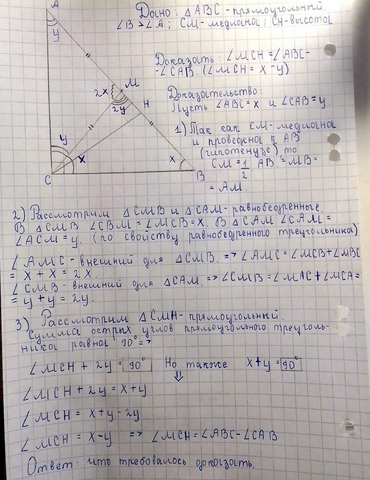 Дано: △ABC-прямоугольный
∠B>∠A; CM-медиана; CH-высота
Доказать ∠MCH=∠ABC-
-∠CAB. (∠MCH=x-y)
Доказательство:
Пусть ∠ABC=x и ∠CAB=y
1) Так как CM-медиана
и проведена к AB
(гипотенузе) то
CM=1/2 AB=MB=
=AM.
A
y
2x
M
H
2y
y
x
x
C
B
2) Рассмотрим △CMB и △CAM-равнобедренные
В △CMB ∠CBM=∠MCB=x. В △CAM ∠CAM=
=∠ACM=y. (по свойству равнобедренного треугольника)
∠AMC-внешний для △CMB.=>∠AMC=∠MCB+∠MBC
=x+x=2x.
∠CMB-внешний для △CAM=>∠CMB=∠MAC+∠MCA=
=y+y=2y.
3) Рассмотрим △CMH-прямоугольный.
Сумма острых углов прямоугольного треуголь-
ника равна 90°=>
∠MCH+2y=90° Но также x+y=90°
⇓
∠MCH+2y=x+y
∠MCH=x+y-2y
∠MCH=x-y =>∠MCH=∠ABC-∠CAB
Ответ: что требовалось доказать.